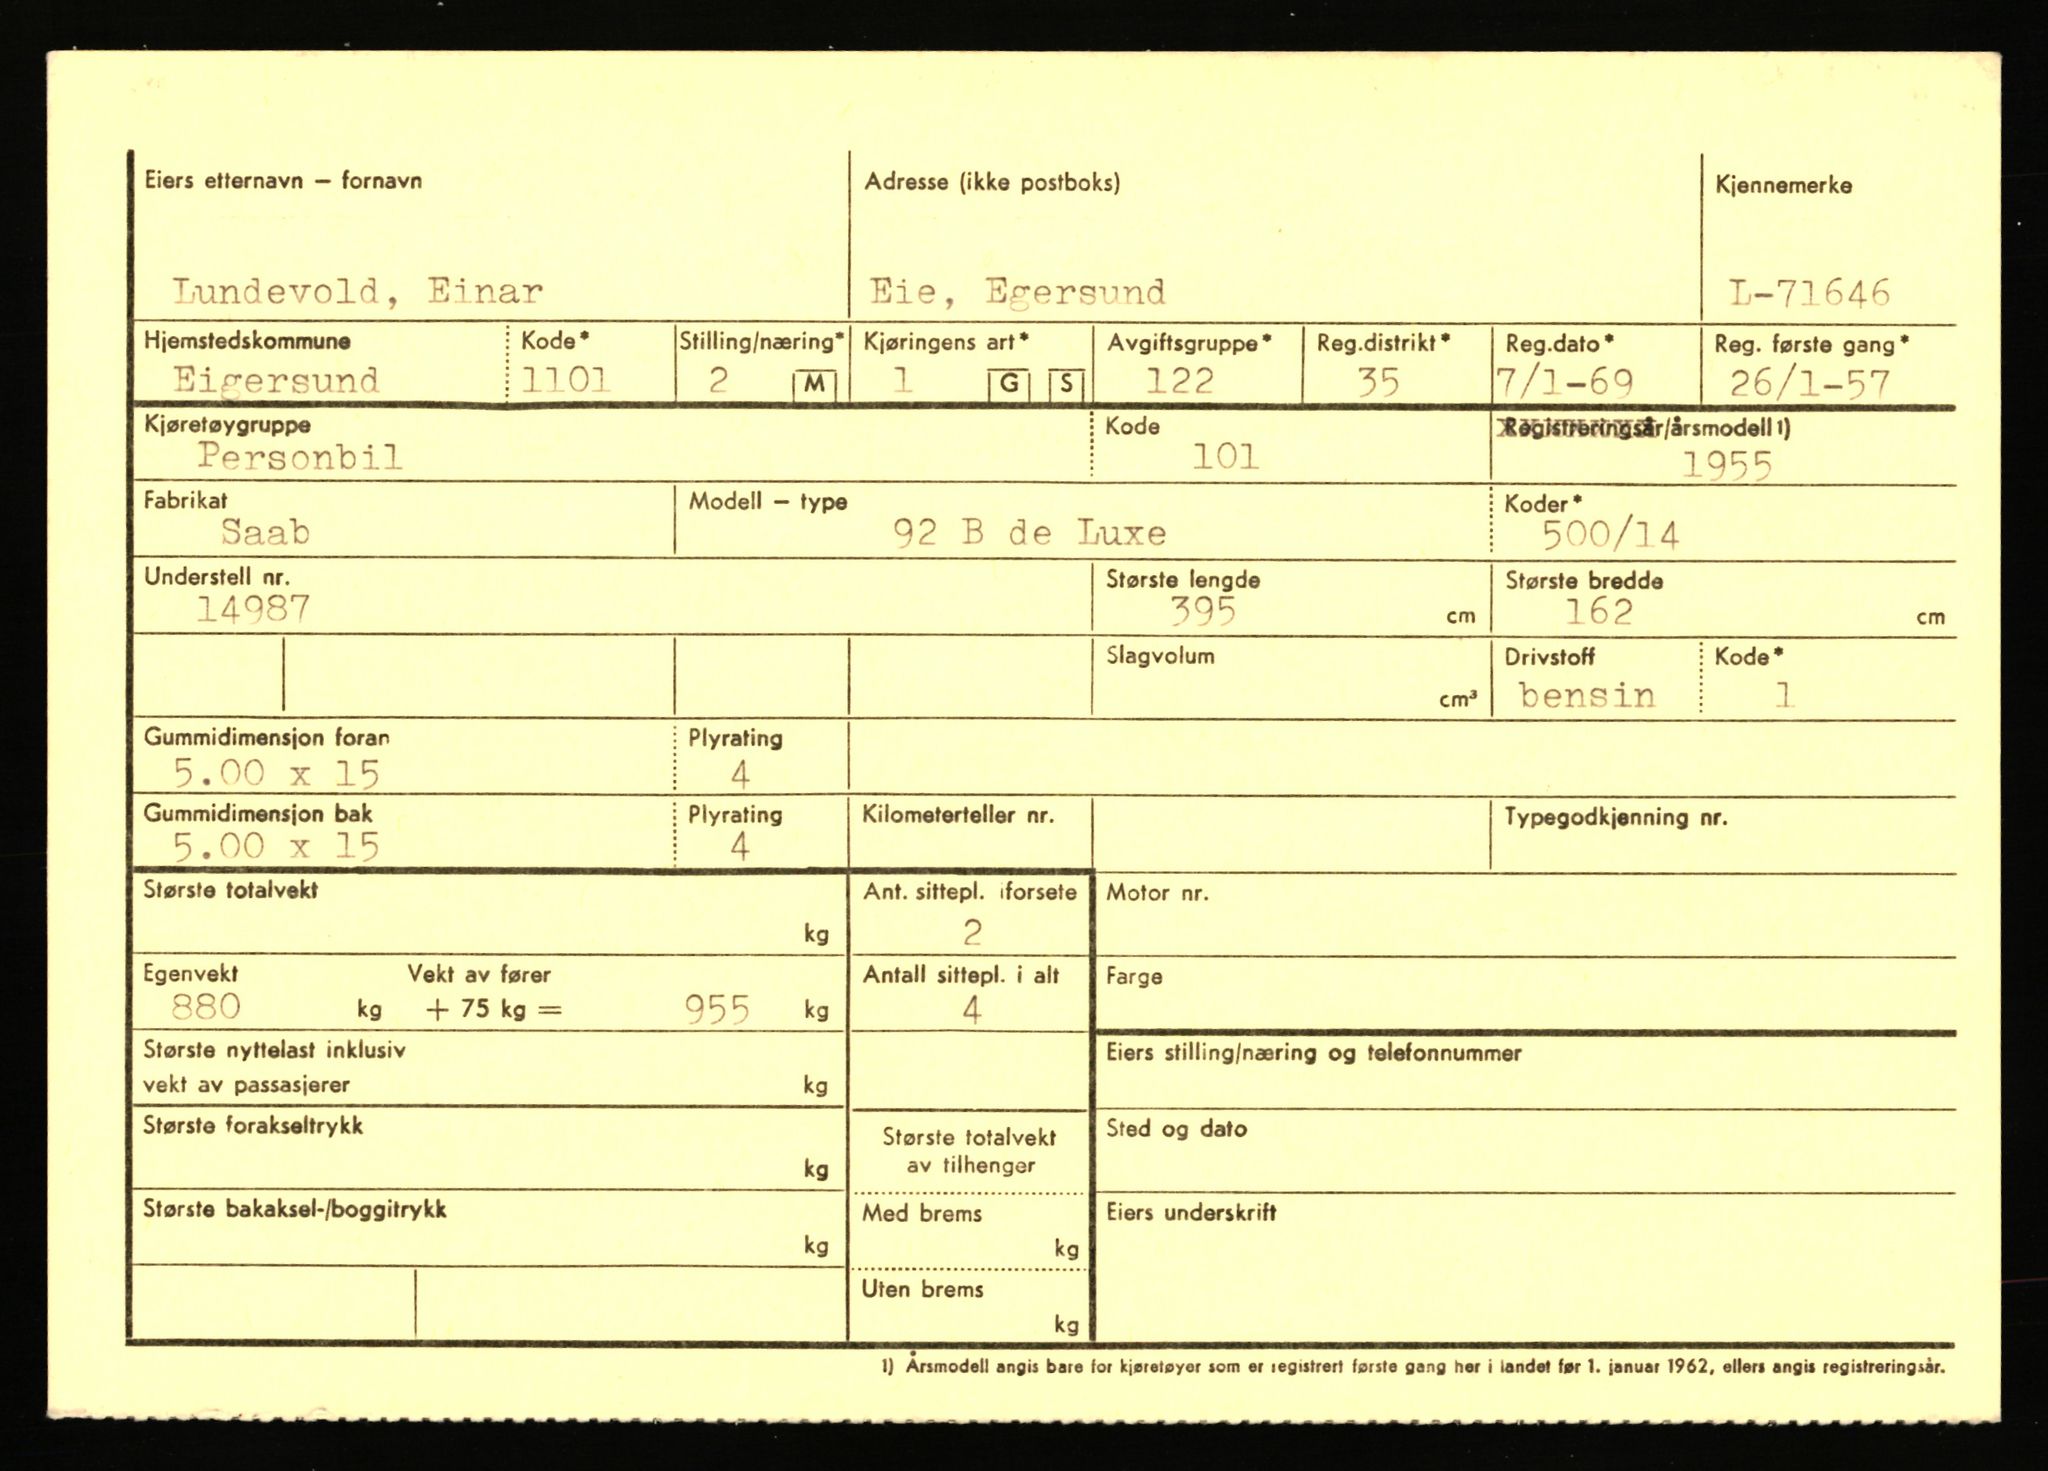 Eiers etternavn – fornavn
Adresse (ikke postboks)
Kjennemerke
Lundevold, Einar
Eie, Egersund
L-71646
Hjemstedskommune
Kode*
Stilling/næring*
Kjøringens art*
Avgiftsgruppe*
Reg.distrikt*
Reg.dato*
Reg. første gang*
Eigersund
1101
2 M
1 G S
122
35
7/1-69
26/1-57
Kjøretøygruppe
Kode
Registreringsår/årsmodell 1)
Personbil
101
1955
Fabrikat
Modell – type
Koder*
Saab
92 B de Luxe
500/14
Understell nr.
Største lengde
Største bredde
14987
395 cm
162 cm
Slagvolum
Drivstoff
Kode*
cm³
bensin
1
Gummidimensjon foran
Plyrating
5.00 x 15
4
Gummidimensjon bak
Plyrating
Kilometerteller nr.
Typegodkjenning nr.
5.00 x 15
4
Største totalvekt
Ant. sittepl. i forsete
Motor nr.
kg
2
Egenvekt
Vekt av fører
Antall sittepl. i alt
Farge
880 kg + 75 kg = 955 kg
4
Største nyttelast inklusiv
vekt av passasjerer kg
Eiers stilling/næring og telefonnummer
Største forakseltrykk
kg
Største totalvekt
av tilhenger
Sted og dato
Største bakaksel-/boggitrykk
kg
Med brems
kg
Eiers underskrift
Uten brems
kg
1) Årsmodell angis bare for kjøretøyer som er registrert første gang her i landet før 1. januar 1962, ellers angis registreringsår.